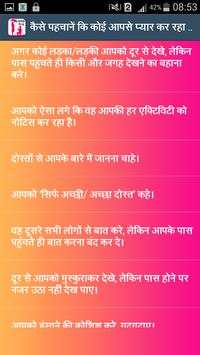 08:53
कैसे पहचानें कि कोई आपसे प्यार कर रहा ..
अगर कोई लडका/लड़की आपको दूर से देखे, लेकिन
पास पहुंचते ही किसी और जगह देखने का बहाना
करे।
आपको ऐसा लगे कि वह आपकी हर एक्टिविटी को
नोटिस कर रहा है।
दोस्तों से आपके बारे में जानना चाहे।
आपको 'सिर्फ अच्छी/ अच्छा दोस्त' कहे।
वह दूसरे सभी लोगों से बात करे, लेकिन आपके पास
पहुंचते ही बात करना बंद कर दे।
दूर से आपको मुस्कुराकर देखे, लेकिन पास होने पर
नजर उठा नहीं देख पाए।